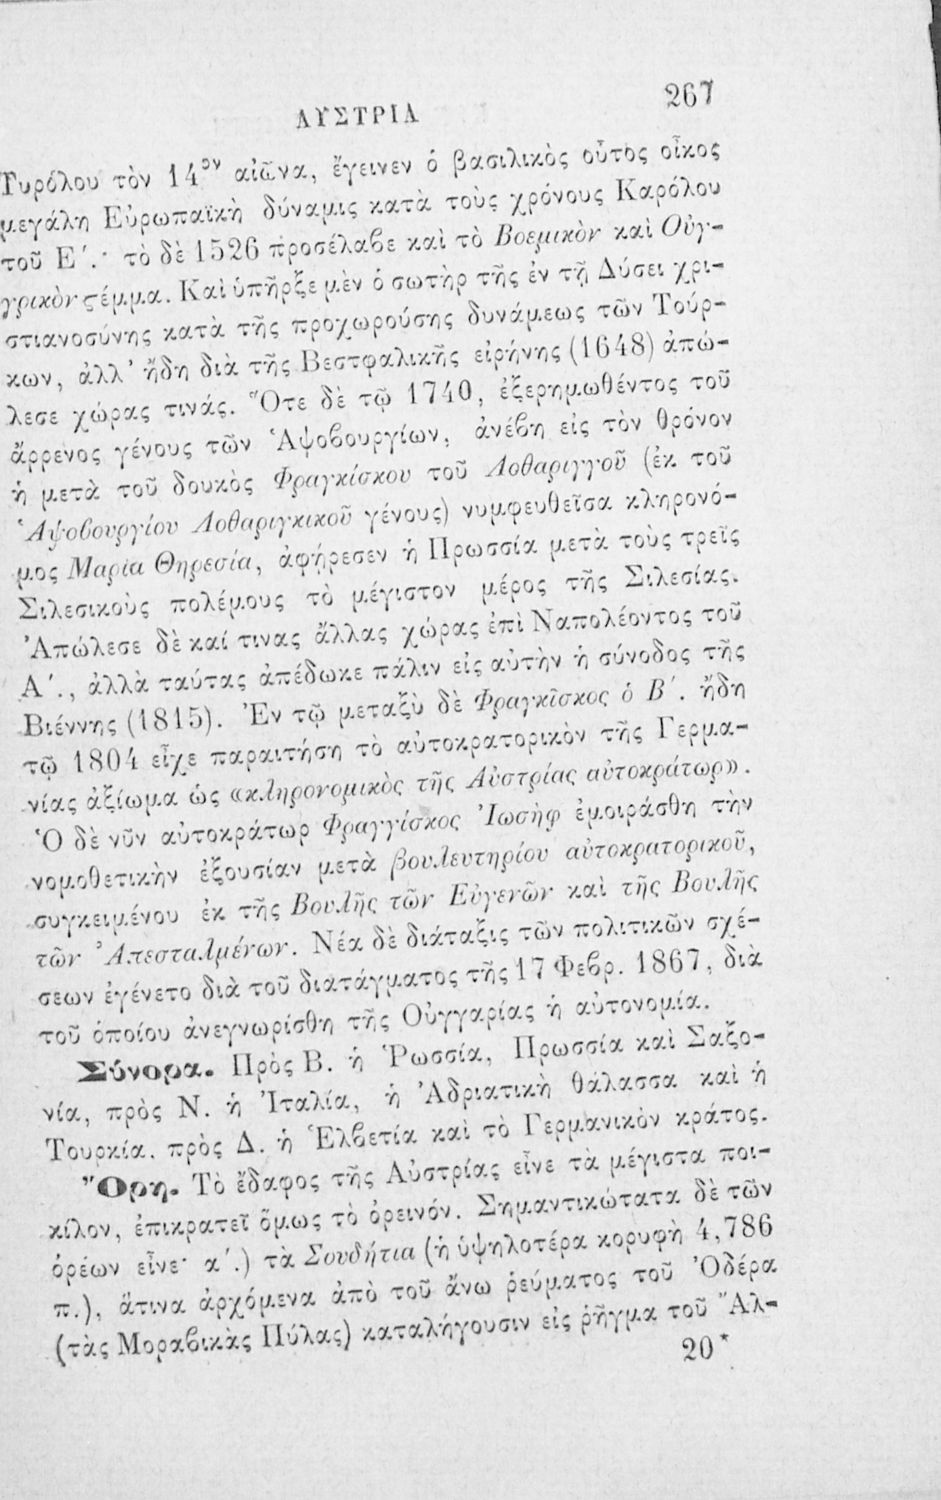 ΑΥΣΤΡΙΑ 267
Τυρόλου τὸν 14ον αἰῶνα, ἔγεινεν ὁ βασιλικὸς οὗτος οἶκος
μεγάλη Εὐρωπαϊκὴ δύναμις κατὰ τοὺς χρόνους Καρόλου
τοῦ Ε΄.· τὸ δὲ 1526 προσέλαβε καὶ τὸ Βοεμικὸν καὶ Οὐγ-
γρικὸν ϛέμμα. Καὶ ὑπῆρξε μὲν ὁ σωτὴρ τῆς ἐν τῇ Δύσει χρι-
στιανοσύνης κατὰ τῆς προχωρούσης δυνάμεως τῶν Τούρ-
κων, ἀλλ' ἤδη διὰ τῆς Βεστφαλικῆς εἰρήνης (1648) ἀπώ-
λεσε χώρας τινάς. Ὅτε δὲ τῷ 1740, ἐξερημωθέντος τοῦ
ἄρρενος γένους τῶν Ἁψοβουργίων, ἀνέβη εἰς τὸν θρόνον
ἡ μετὰ τοῦ δουκὸς Φραγκίσκου τοῦ Λοθαριγγοῦ (ἐκ τοῦ
Ἁψοβουργίου Λοθαριγκικοῦ γένους) νυμφευθεῖσα κληρονό-
μος Μαρία Θηρεσία, ἀφῄρεσεν ἡ Πρωσσία μετὰ τοὺς τρεῖς
Σιλεσικοὺς πολέμους τὸ μέγιστον μέρος τῆς Σιλεσίας.
Ἀπώλεσε δὲ καί τινας ἄλλας χώρας ἐπὶ Ναπολέοντος τοῦ
Α΄., ἀλλὰ ταύτας ἀπέδωκε πάλιν εἰς αὐτὴν ἡ σύνοδος τῆς
Βιέννης (1815). Ἐν τῷ μεταξὺ δὲ Φραγκῖσκος ὁ Β΄. ἤδη
τῷ 1804 εἶχε παραιτήση τὸ αὐτοκρατορικὸν τῆς Γερμα-
νίας ἀξίωμα ὡς «κληρονομικὸς τῆς Αὐστρίας αὐτοκράτωρ».
Ὁ δὲ νῦν αὐτοκράτωρ Φραγγίσκος Ἰωσὴφ ἐμοιράσθη τὴν
νομοθετικὴν ἐξουσίαν μετὰ βουλευτηρίου αὐτοκρατορικοῦ,
συγκειμένου ἐκ τῆς Βουλῆς τῶν Εὐγενῶν καὶ τῆς Βουλῆς
τῶν Ἀπεσταλμένων. Νέα δὲ διάταξις τῶν πολιτικῶν σχέ-
σεων ἐγένετο διὰ τοῦ διατάγματος τῆς 17 Φεβρ. 1867, διὰ
τοῦ ὁποίου ἀνεγνωρίσθη τῆς Οὑγγαρίας ἡ αὐτονομία.
Σύνορα. Πρὸς Β. ἡ Ῥωσσία, Πρωσσία καὶ Σαξο-
νία, πρὸς Ν. ἡ Ἰταλία, ἡ Ἀδριατικὴ θάλασσα καὶ ἡ
Τουρκία. πρὸς Δ. ἡ Ἑλβετία καὶ τὸ Γερμανικὸν κράτος.
Ὄρη. Τὸ ἔδαφος τῆς Αὐστρίας εἶνε τὰ μέγιστα ποι-
κίλον, ἐπικρατεῖ ὅμως τὸ ὀρεινόν. Σημαντικώτατα δὲ τῶν
ὀρέων εἶνε· α΄.) τὰ Σουδήτια (ἡ ὑψηλοτέρα κορυφὴ 4,786
π.), ἅτινα ἀρχόμενα ἀπὸ τοῦ ἄνω ῥεύματος τοῦ Ὀδέρα
(τὰς Μοραβικὰς Πύλας) καταλήγουσιν εἰς ῥῆγμα τοῦ Ἄλ-
20*